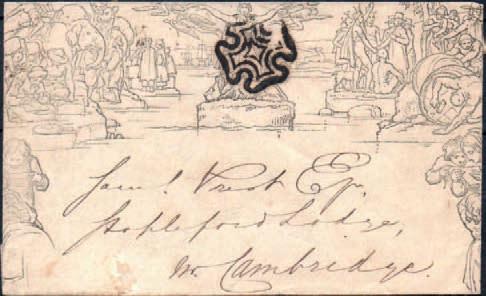 Saml. Prest Esqr.
Stapleford Lodge,
Nr. Cambridge.